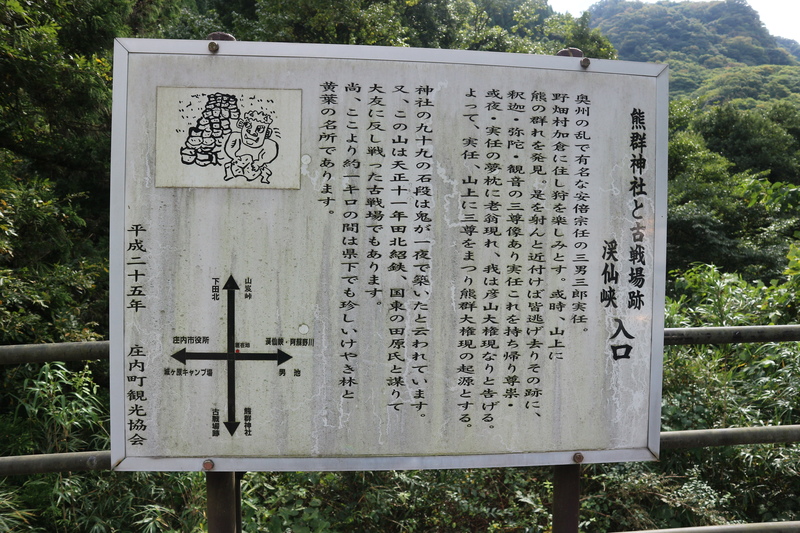 熊群神社と古戦場跡
渓仙峡 入口
奥州の乱で有名な安倍宗任の三男三郎実任。
野畑村加倉に住し狩を楽しみとす。或時、山上に
熊の群れを発見。是を射んと近付けば皆逃げ去りその跡に、
釈迦・弥陀・観音の三尊像あり実任これを持ち帰り尊崇・
或夜・実任の夢枕に老翁現れ、我は彦山大権現なりと告げる。
よって、実任、山上に三尊をまつり熊群大権現の起源とする。
神社の九十九の石段は鬼が一夜で築いたと云われています。
又、この山は天正十一年田北紹鉄、国東の田原氏と謀りて
大友に反し戦った古戦場でもあります。
尚、ここより約一キロの間は県下でも珍しいけやき林と
黄葉の名所であります。
山嵐峠
下田北
庄内市役所
渓仙峡・阿蘇野川
城ヶ原キャンプ場
男池
熊群神社
古戦場跡
平成二十五年 庄内町観光協会